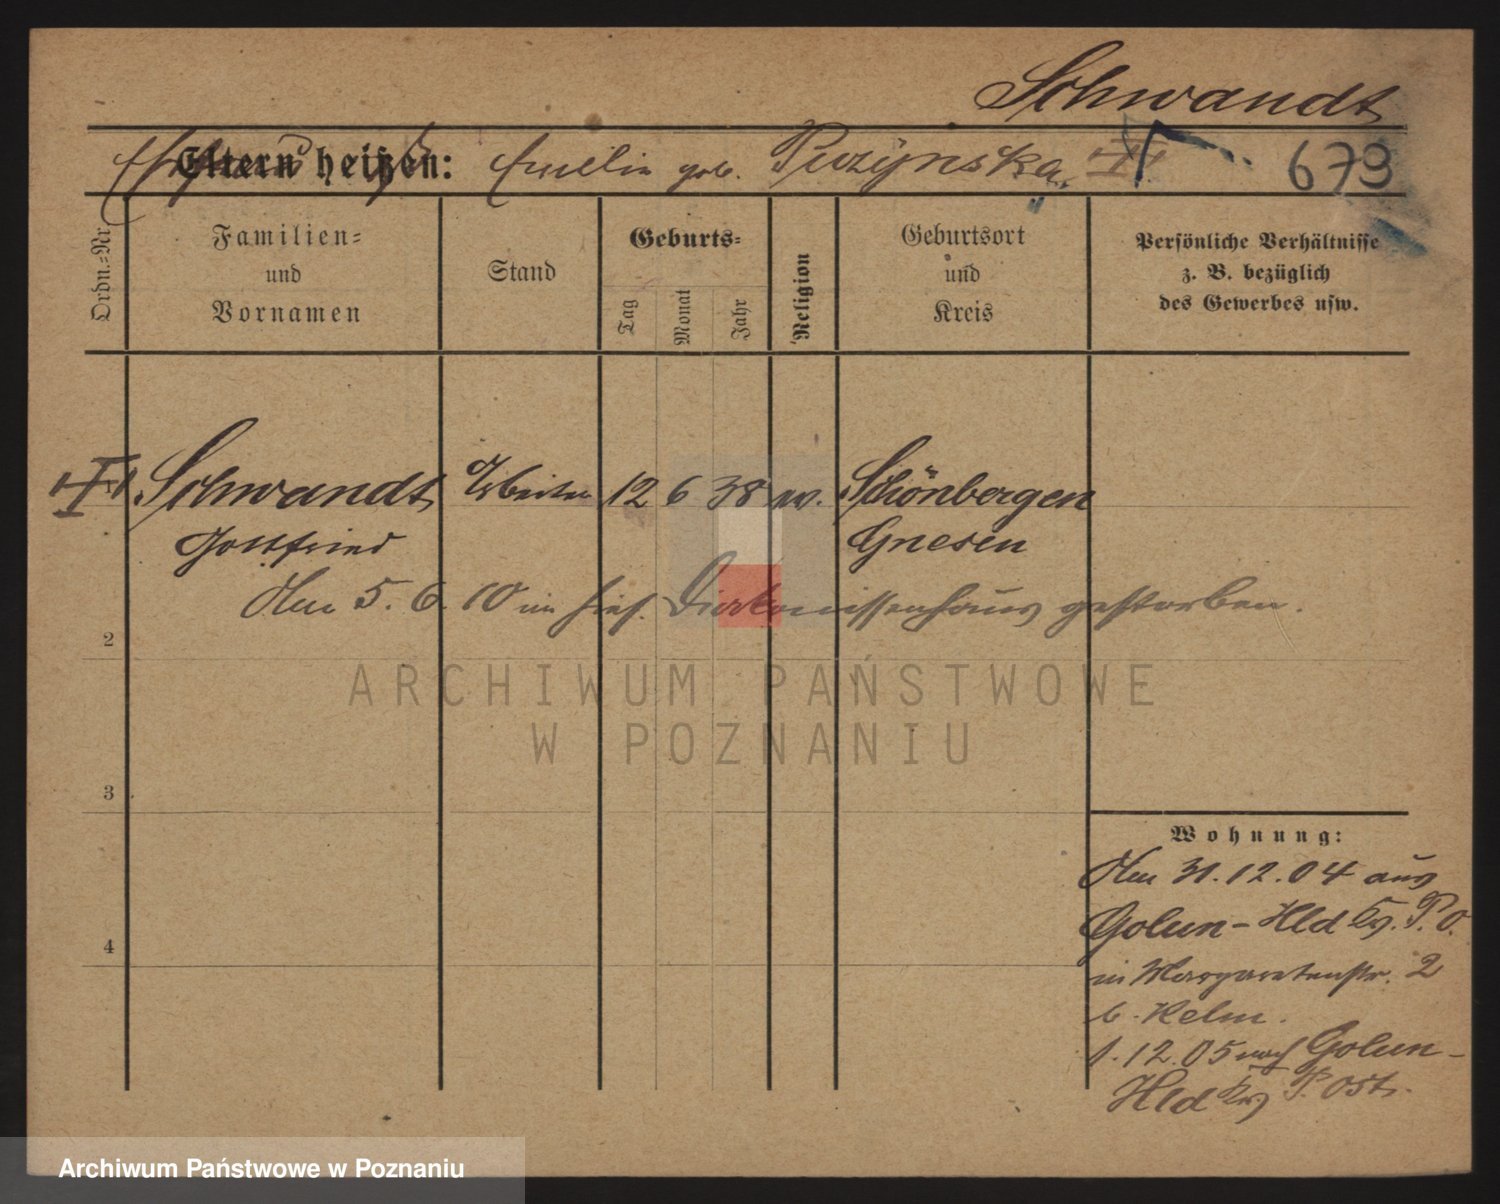 Schwandt
Eltern heißen: Emilie geb. Puzynska
673
Ordn.=Nr
Familien=
und
Vornamen
Stand
Geburts=
Tag
Monat
Jahr
Religion
Geburtsort
und
Kreis
Persönliche Verhältnisse
z. B. bezüglich
des Gewerbes usw.
Schwandt Arbeiter 12 6 38 ev. Schönbergen
Gottfried Gnesen
Am 5. 6. 10 im hies. Diakonissenhaus gestorben.
2
3
4
Wohnung:
Am 31.12.04 aus
Golun-Hld Kr. P. O.
in Margaretenstr. 2
b. Helm.
1.12.05 nach Golun-
Hld Kr. P. Ost.
ARCHIWUM PAŃSTWOWE
W POZNANIU
Archiwum Państwowe w Poznaniu